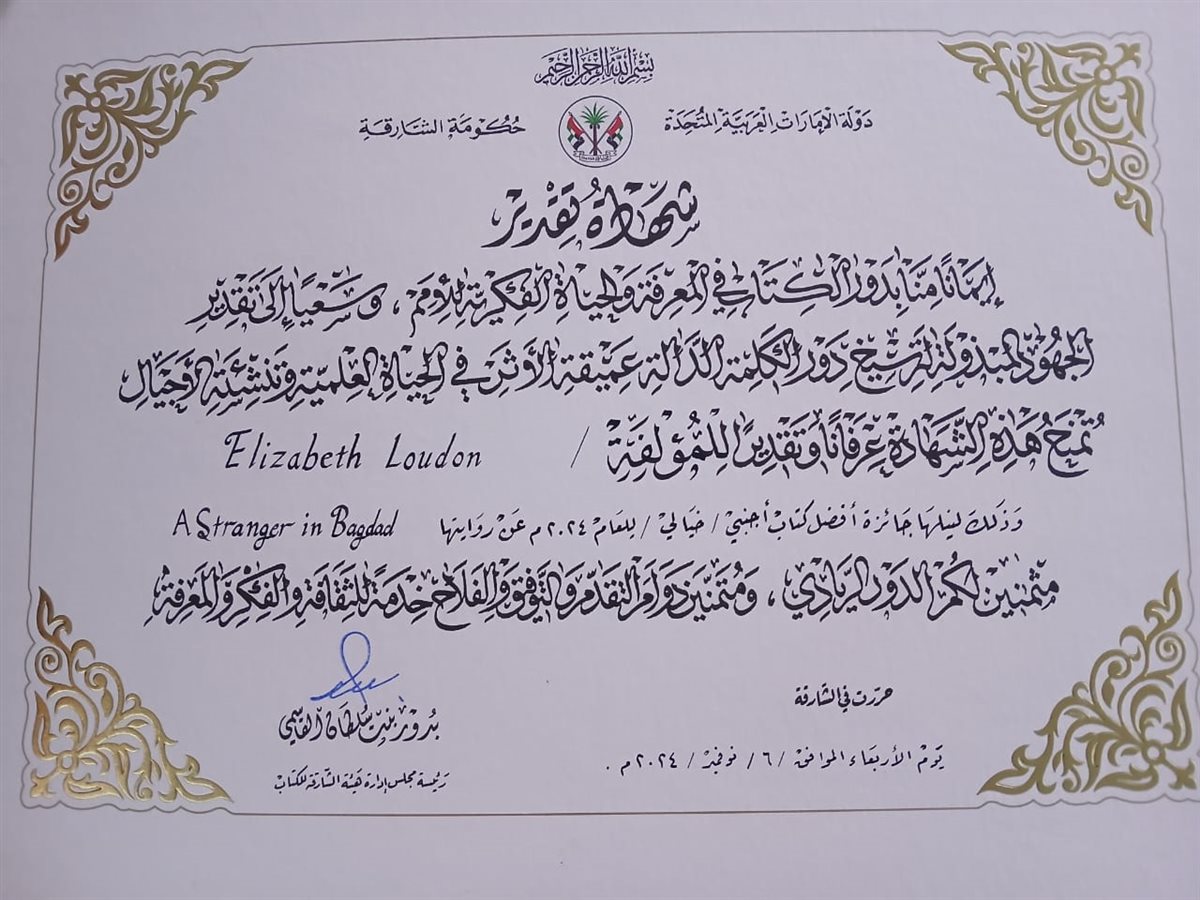 بسم الله الرحمن الرحيم
دَوْلَة الإمَارَات العَرَبيَّة المتُّحَدَة
حُكُومَة الشَّارقَة
شَهَادَة تَقْدير
إيمَانًا منَّا بدَوْر الكتَاب في المَعرفَة وَالحيَاة الفكْريَّة للأُمَم ، وسَعْيًا إلَى تَقْدير
الجهُود المبذولَة لترسيخ دَوْر الكَلمَة الدَّالَة عَميقَة الأَثَر في الحيَاة العلميَّة وَتنشئَة الأَجيَال
تُمنَح هَذه الشَّهَادَة عرفَانًا وَتَقديرًا للمُؤَلفَة / Elizabeth Loudon
وَذَلكَ لنيلهَا جَائزَة أفضَل كتَاب أجنبي / خيَالي / للعَام ٢٠٢٤م عَن روَايتهَا A Stranger in Bagdad
مثمنين لكُم الدَور الريَادي ، وَمُتمنّين دَوَام التقدّم وَالتَّوفيق وَالفَلَاح خدمَةً للثقَافَة وَالفكْر وَالمَعرفَة
حررت في الشارقة
يَوم الأربعَاء الموَافق / ٦ / نوفمبر / ٢٠٢٤م .
بُدُور بنت سُلطَان القَاسمي
رَئيسَة مجلس إدَارَة هَيئَة الشَّارقَة للكتَاب